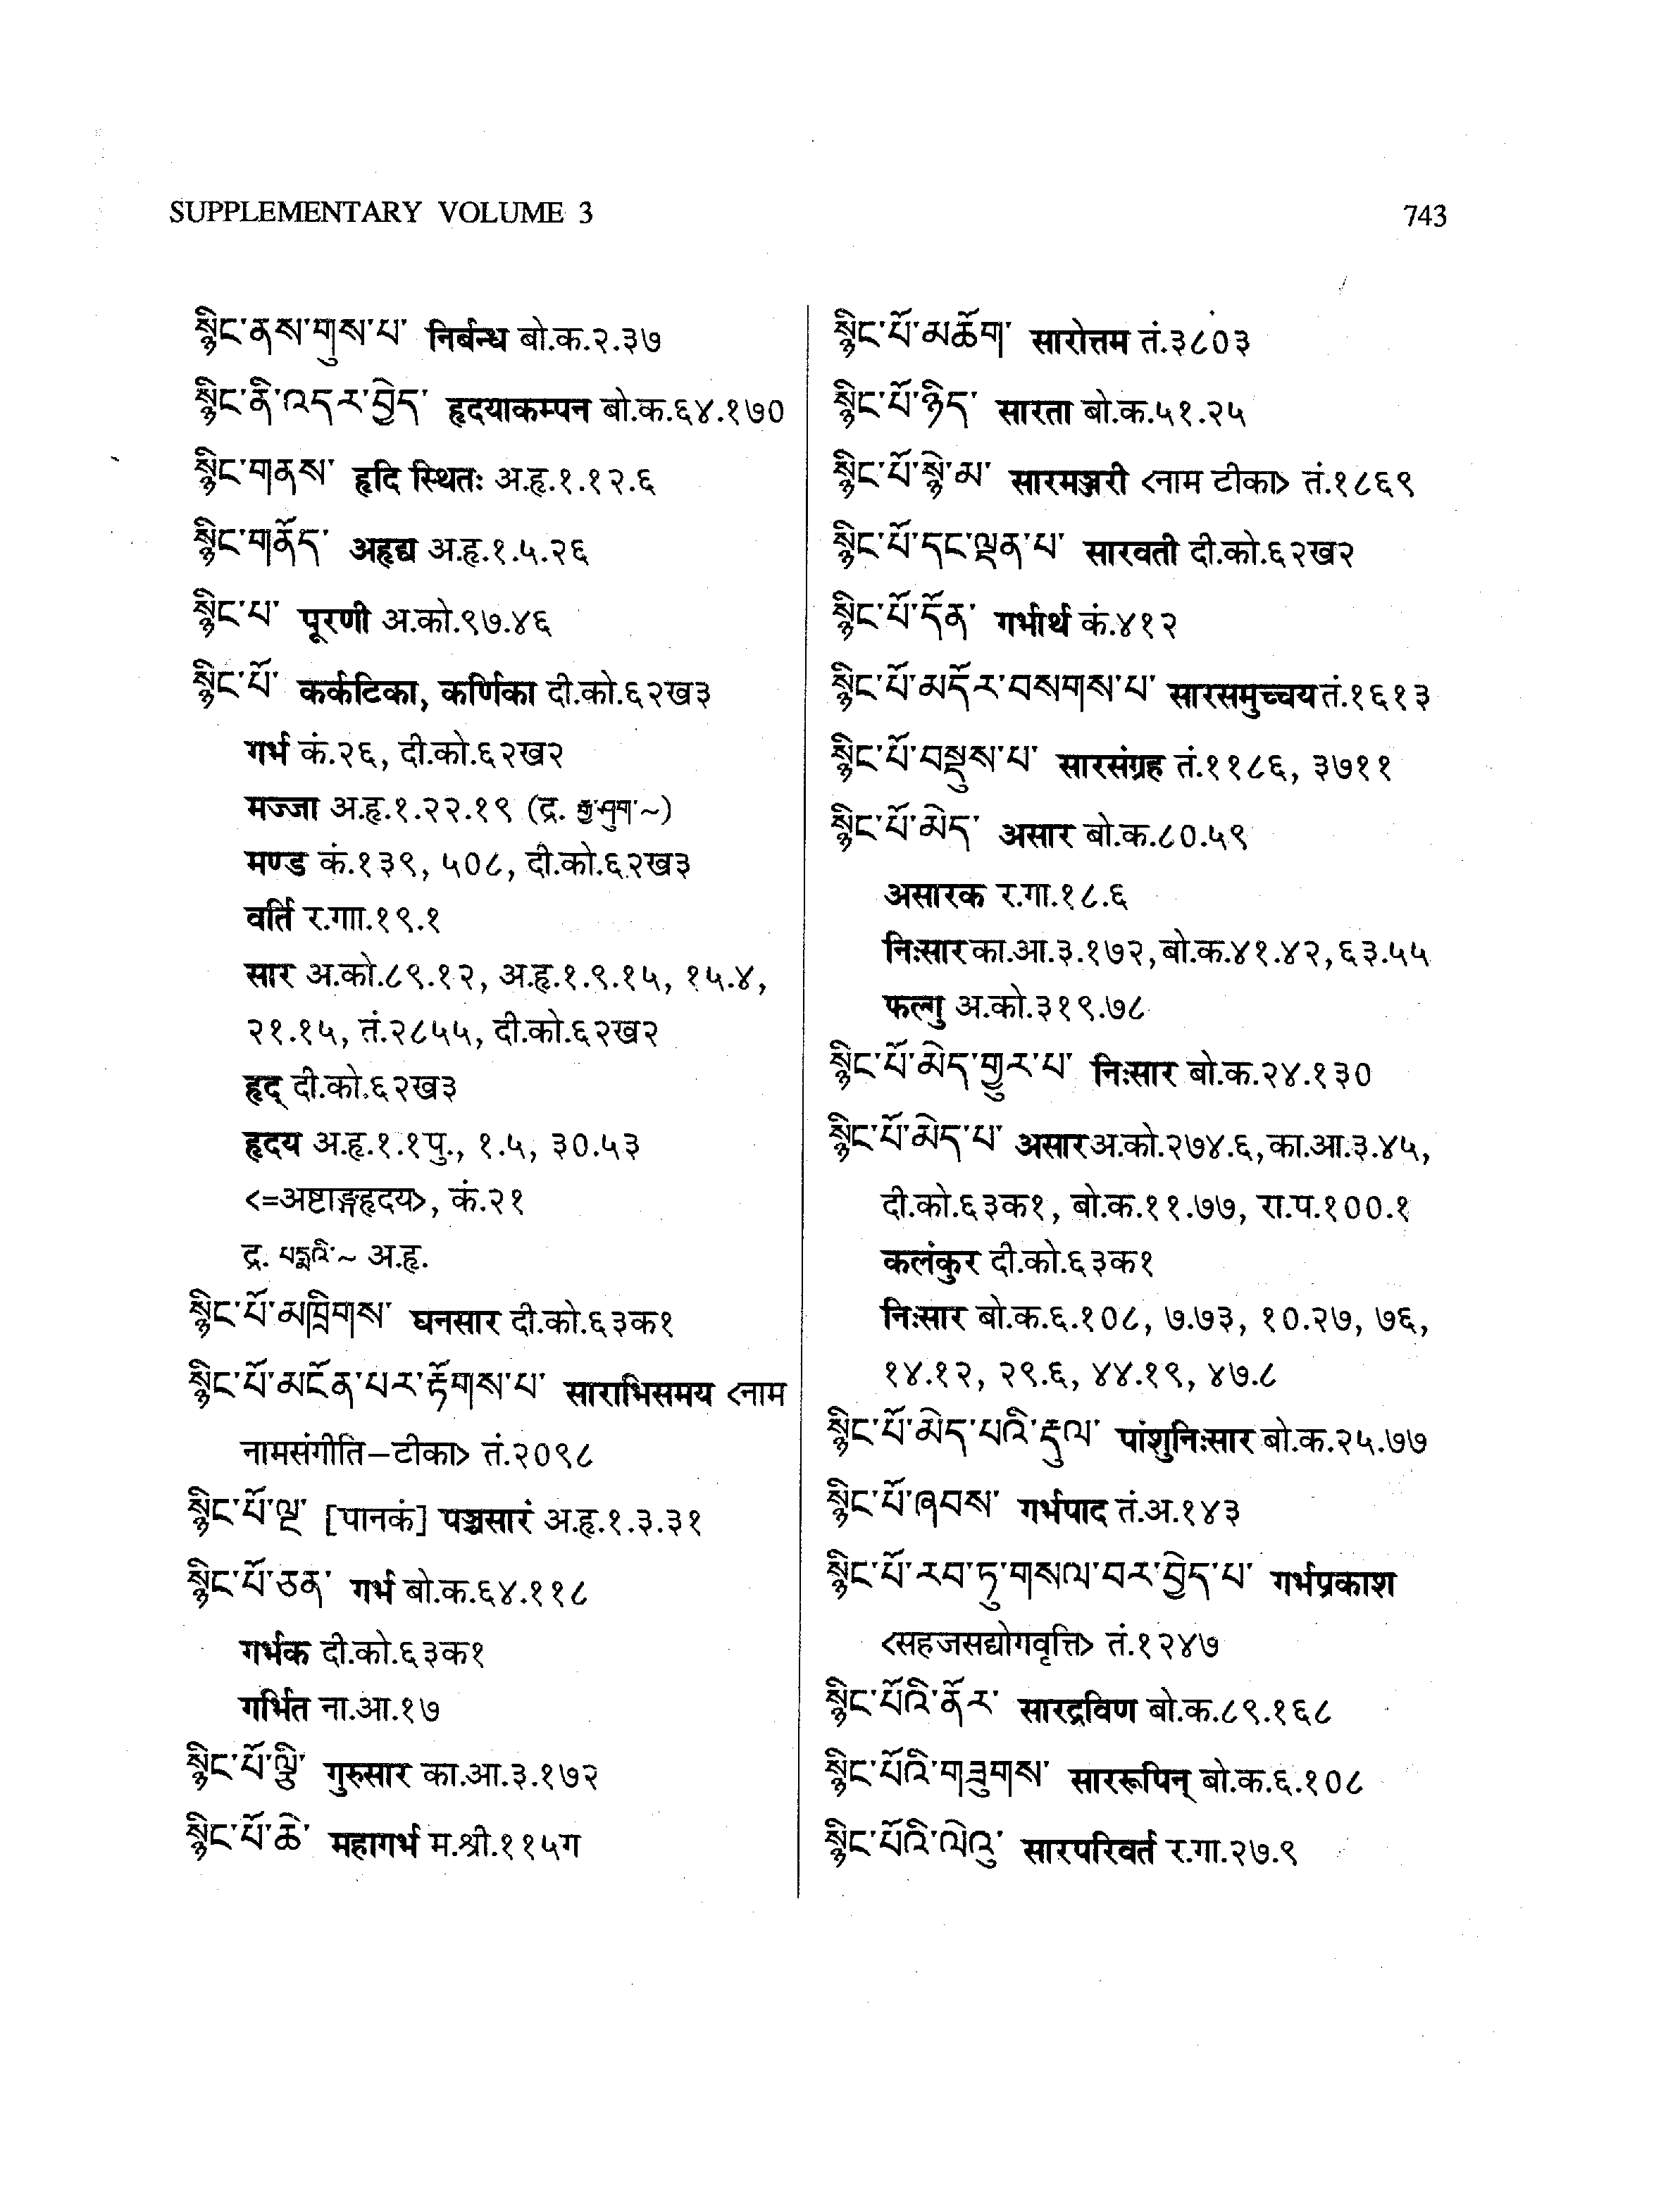 SUPPLEMENTARY VOLUME 3
743
སྙིང་ནས་གུས་པ་ निर्बन्ध बो.क.२.३७
སྙིང་ནི་འདར་བྱེད་ हृदयाकम्पन बो.क.६४.१७०
སྙིང་གནས་ हृदि स्थितः अ.हृ.१.१२.६
སྙིང་གནོད་ अहृद्य अ.हृ.१.५.२६
སྙིང་པ་ पूरणी अ.को.९७.४६
སྙིང་པོ་ कर्कटिका, कर्णिका दी.को.६२ख३
गर्भ कं.२६, दी.को.६२ख२
मज्जा अ.हृ.१.२२.१९ (द्र. ~)
मण्ड कं.१३९, ५०८, दी.को.६२ख३
वर्ति र.गाा.१९.१
सार अ.को.८९.१२, अ.हृ.१.९.१५, १५.४,
२१.१५, तं.२८५५, दी.को.६२ख२
हृद् दी.को.६२ख३
हृदय अ.हृ.१.१पु., १.५, ३०.५३
<=अष्टाङ्गहृदय>, कं.२१
द्र. པདྨའི་~ अ.हृ.
སྙིང་པོ་མཁྲིགས་ घनसार दी.को.६३क१
སྙིང་པོ་མངོན་པར་རྟོགས་པ་ साराभिसमय <नाम
नामसंगीति–टीका> तं.२०९८
སྙིང་པོ་ལྔ་ [पानकं] पञ्चसारं अ.हृ.१.३.३१
སྙིང་པོ་ཅན་ गर्भ बो.क.६४.११८
गर्भक दी.को.६३क१
गर्भित ना.आ.१७
སྙིང་པོ་ལྕི་ गुरुसार का.आ.३.१७२
སྙིང་པོ་ཆེ་ महागर्भ म.श्री.११५ग
སྙིང་པོ་མཆོག་ सारोत्तम तं.३८०३
སྙིང་པོ་ཉིད་ सारता बो.क.५१.२५
སྙིང་པོ་སྙེ་མ་ सारमञ्जरी <नाम टीका> तं.१८६९
སྙིང་པོ་དང་ལྡན་པ་ सारवती दी.को.६२ख२
སྙིང་པོ་དོན་ गर्भार्थ कं.४१२
སྙིང་པོ་མདོར་བསགས་པ་ सारसमुच्चय तं.१६१३
སྙིང་པོ་བསྡུས་པ་ सारसंग्रह तं.११८६, ३७११
སྙིང་པོ་མེད་ असार बो.क.८०.५९
असारक र.गा.१८.६
निःसार का.आ.३.१७२, बो.क.४१.४२, ६३.५५
फल्गु अ.को.३१९.७८
སྙིང་པོ་མེད་གྱུར་པ་ निःसार बो.क.२४.१३०
སྙིང་པོ་མེད་པ་ असार अ.को.२७४.६, का.आ.३.४५,
दी.को.६३क१, बो.क.११.७७, रा.प.१००.१
कलंकुर दी.को.६३क१
निःसार बो.क.६.१०८, ७.७३, १०.२७, ७६,
१४.१२, २९.६, ४४.१९, ४७.८
སྙིང་པོ་མེད་པའི་རྡུལ་ पांशुनिःसार बो.क.२५.७७
སྙིང་པོ་ཞབས་ गर्भपाद तं.अ.१४३
སྙིང་པོ་རབ་ཏུ་གསལ་བར་བྱེད་པ་ गर्भप्रकाश
<सहजसद्योगवृत्ति> तं.१२४७
སྙིང་པོའི་ནོར་ सारद्रविण बो.क.८९.१६८
སྙིང་པོའི་གཟུགས་ साररूपिन् बो.क.६.१०८
སྙིང་པོའི་ལེའུ་ सारपरिवर्त र.गा.२७.९